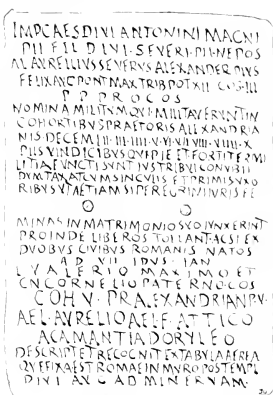 IMP CAES DIVI ANTONINI MAGNI
PII FIL DIVI SEVERI PII NEPOS
M AVRELLIVS SEVERVS ALEXANDER PIVS
FELIX AVG PONT MAX TRIB POT XII COS III
P P PROCOS
NOMINA MILITVM QVI MILITAVERVNT IN
COHORTIBVS PRAETORIS ALEXANDRIA
NIS DECEM I II III IIII V VI VII VIII VIIII X
PIIS VINDICIBVS QVI PIE ET FORTITER MI
LITIA FVNCTI SVNT IVS TRIBVI CONVBII
DVMTAXAT CVM SINGVLIS ET PRIMIS VXO
RIBVS VT ETIAM SI PEREGRINI IVRIS FE
MINAS IN MATRIMONIO SVO IVNXERINT
PROINDE LIBEROS TOLLANT ACSI EX
DVOBVS CIVIBVS ROMANIS NATOS
A D VII IDVS IAN
L VALERIO MAXIMO ET
CN CORNELIO PATERNO COS
COH V PR ALEXANDRIAN P V
AEL AVRELIO AEL F ATTICO
ACAMANTIA DORYLEO
DESCRIPT ET RECOGNIT EX TABVLA AEREA
QVE FIXA EST ROMAE IN MVRO POS TEMPL
DIVI AVG AD MINERVAM